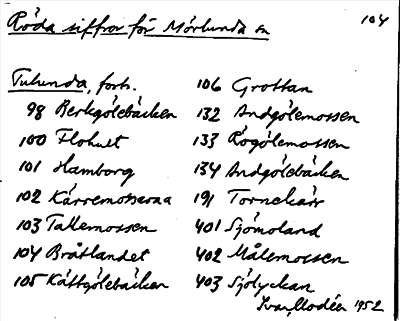 104
Röda siffror för Mörlunda sn
Tulunda, forts.
98 Berkgölebäcken
100 Flohult
101 Hamborg
102 Kärremossarna
103 Tallemossen
104 Bråtlandet
105 Kättgölebäcken
106 Grottan
132 Andgölemossen
133 Rögölemossen
134 Andgölebäcken
191 Tornekärr
401 Sjömoland
402 Målemossen
403 Sjölyckan
Ivar Modéer 1952